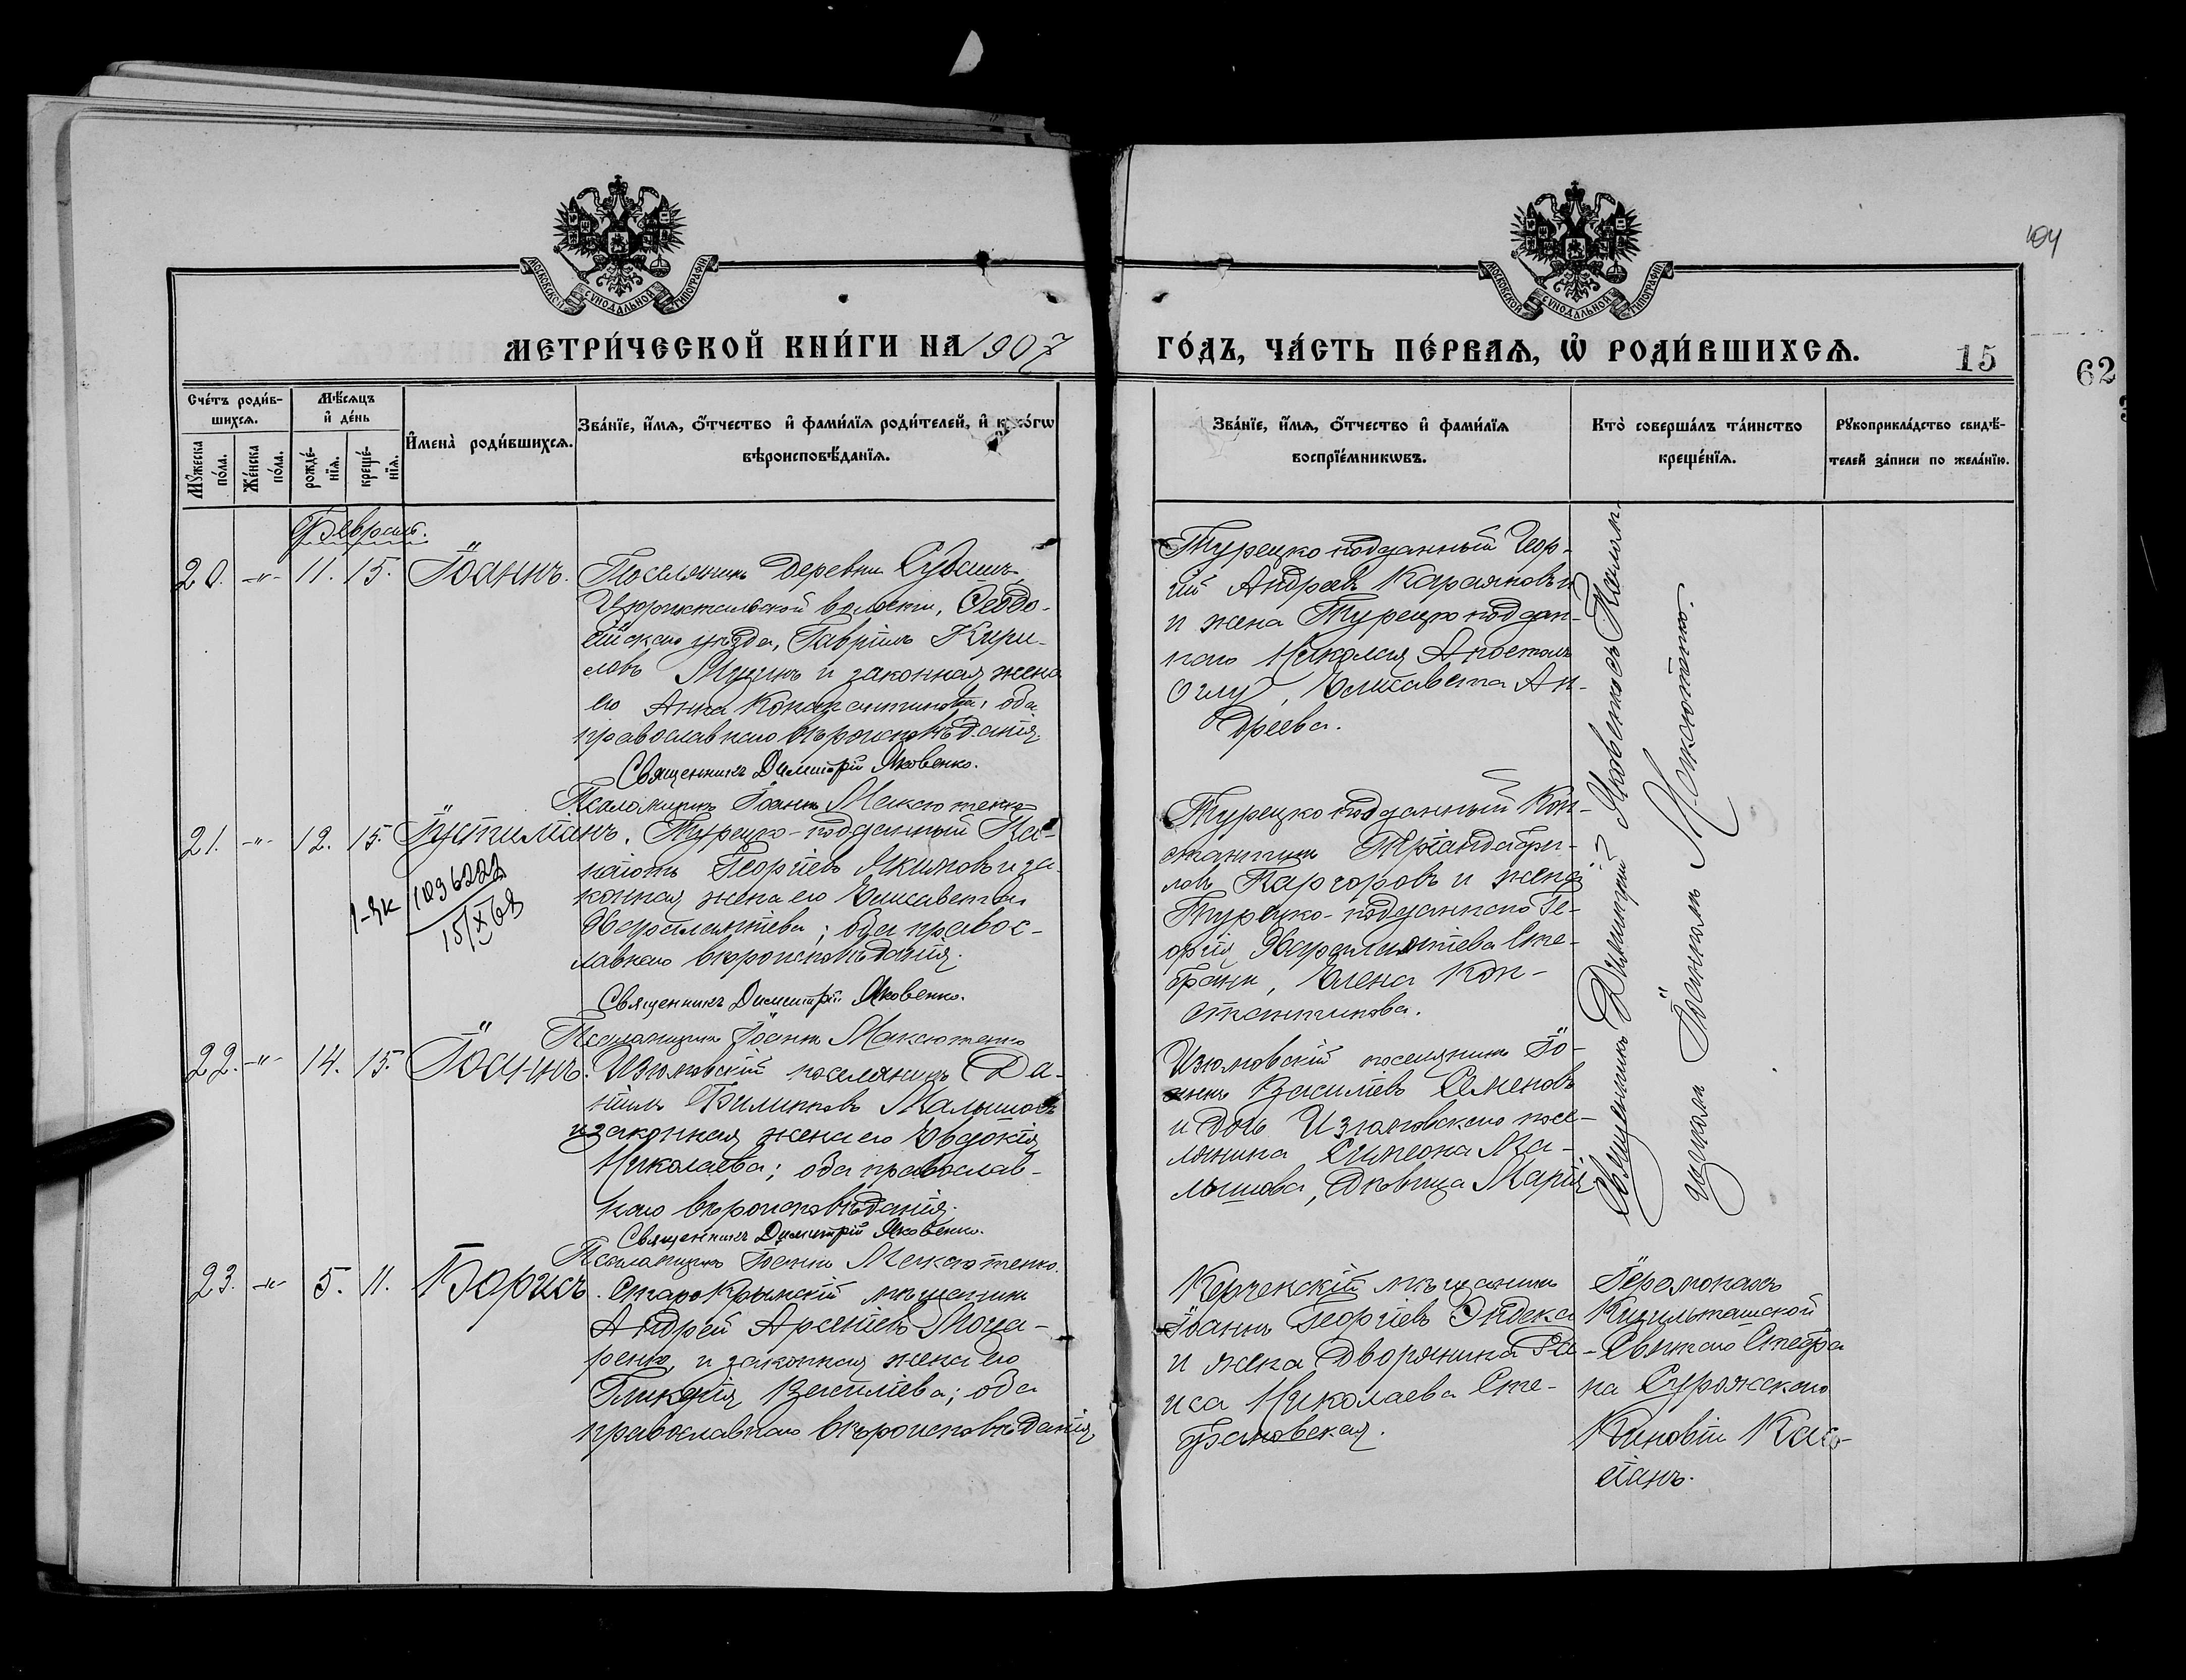 104
МОСКОВСКОЙ СѴНОДАЛЬНОЙ ТИПОГРАФІИ
МОСКОВСКОЙ СѴНОДАЛЬНОЙ ТИПОГРАФІИ
МЕТРИ́ЧЕСКОЙ КНИ́ГИ НА 1907
ГО́ДЪ, ЧА́СТЬ ПЕ́РВАѦ, Ѡ҆ РОДИ́ВШИХСѦ.
15
62
Счéтъ роди́в-
шихсѧ.
Мꙋ́жеска по́ла.
Же́нска по́ла.
Мѣ́сѧцъ
и҆ де́нь
рожде́-
нїѧ.
креще́-
нїѧ.
И҆мена̀ роди́вшихсѧ.
Зва́нїе, и҆́мѧ, ѻ҆́тчество и҆ фами́лїѧ роди́телей, и҆ како́гѡ
вѣроисповѣ́данїѧ.
Зва́нїе, и҆́мѧ, ѻ҆́тчество и҆ фами́лїѧ
воспрїе́мникѡвъ.
Кто̀ соверша́лъ та́инство
креще́нїѧ.
Рꙋкоприкла́дство свидѣ́-
телей за́писи по жела́нїю.
Февраль.
20. -"- 11. 15. Іоаннъ.
Поселянинъ деревни Судакъ
волости, Ѳеодо-
сійскаго уѣзда, Гавріилъ Кири-
ловъ и законная жена
его Анна Константинова, оба
православнаго вѣроисповѣданія.
Священникъ Димитрій Яковенко.
Псаломщикъ Іоаннъ Максютенко
Турецко подданный Геор-
гій Андреевъ Караяновъ
и жена Турецко поддан-
наго Николая Апостолъ
Оглу, Елисавета Ан-
дреева.
Священникъ Димитрій Яковенко съ Псалом-
щикомъ Іоанномъ Максютенко.
21. -"- 12. 15. Іустиніанъ.
1-як 1036222
15/X 68
Турецко-подданный Па-
наіотъ Георгіевъ Якимовъ и за-
конная жена его Елисавета
Харалампіева; оба правос-
лавнаго вѣроисповѣданія.
Священникъ Димитрій Яковенко.
Псаломщикъ Іоаннъ Максютенко
Турецко подданный Кон-
стантинъ Тріандафи-
ловъ и жена
Турецко-подданнаго Ге-
оргія Харалампіева Сте-
фани, Елена Кон-
стантинова.
22. -"- 14. 15. Іоаннъ.
Изюмовскій поселянинъ Да-
ніилъ Филипповъ Малышовъ
и законная жена его Евдокія
Николаева; оба православ-
наго вѣроисповѣданія.
Священникъ Димитрій Яковенко.
Псаломщикъ Іоаннъ Максютенко.
Изюмовскій поселянинъ Іо-
аннъ Василіевъ Семеновъ
и дочь Изюмовскаго посе-
лянина Симеона Ма-
лышова, дѣвица Марія
23. -"- 5. 11. Борисъ.
Старо Крымскій мѣщанинъ
Андрей Арсеніевъ
и законная жена его
Гликерія Василіева; оба
православнаго вѣроисповѣданія
Керченскій мѣщанинъ
Іоаннъ Георгіевъ Индекса
и жена дворянина
Николаева Сте-
фановская.
Іеромонахъ
Кизильташской
Святаго Стефа
на Сурожскаго
Киновіи Кас-
сіанъ.